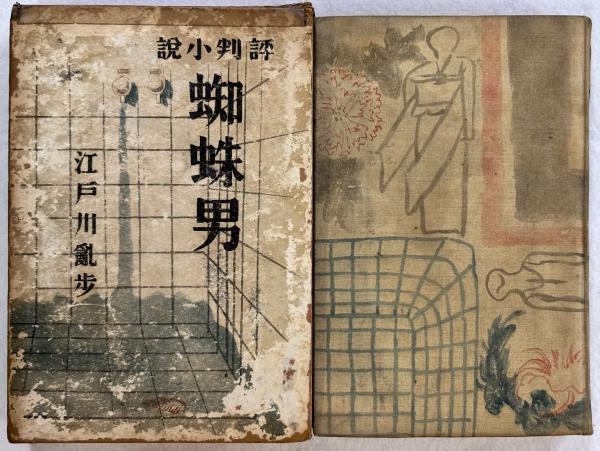 評判小說
蜘蛛男
江戸川亂步